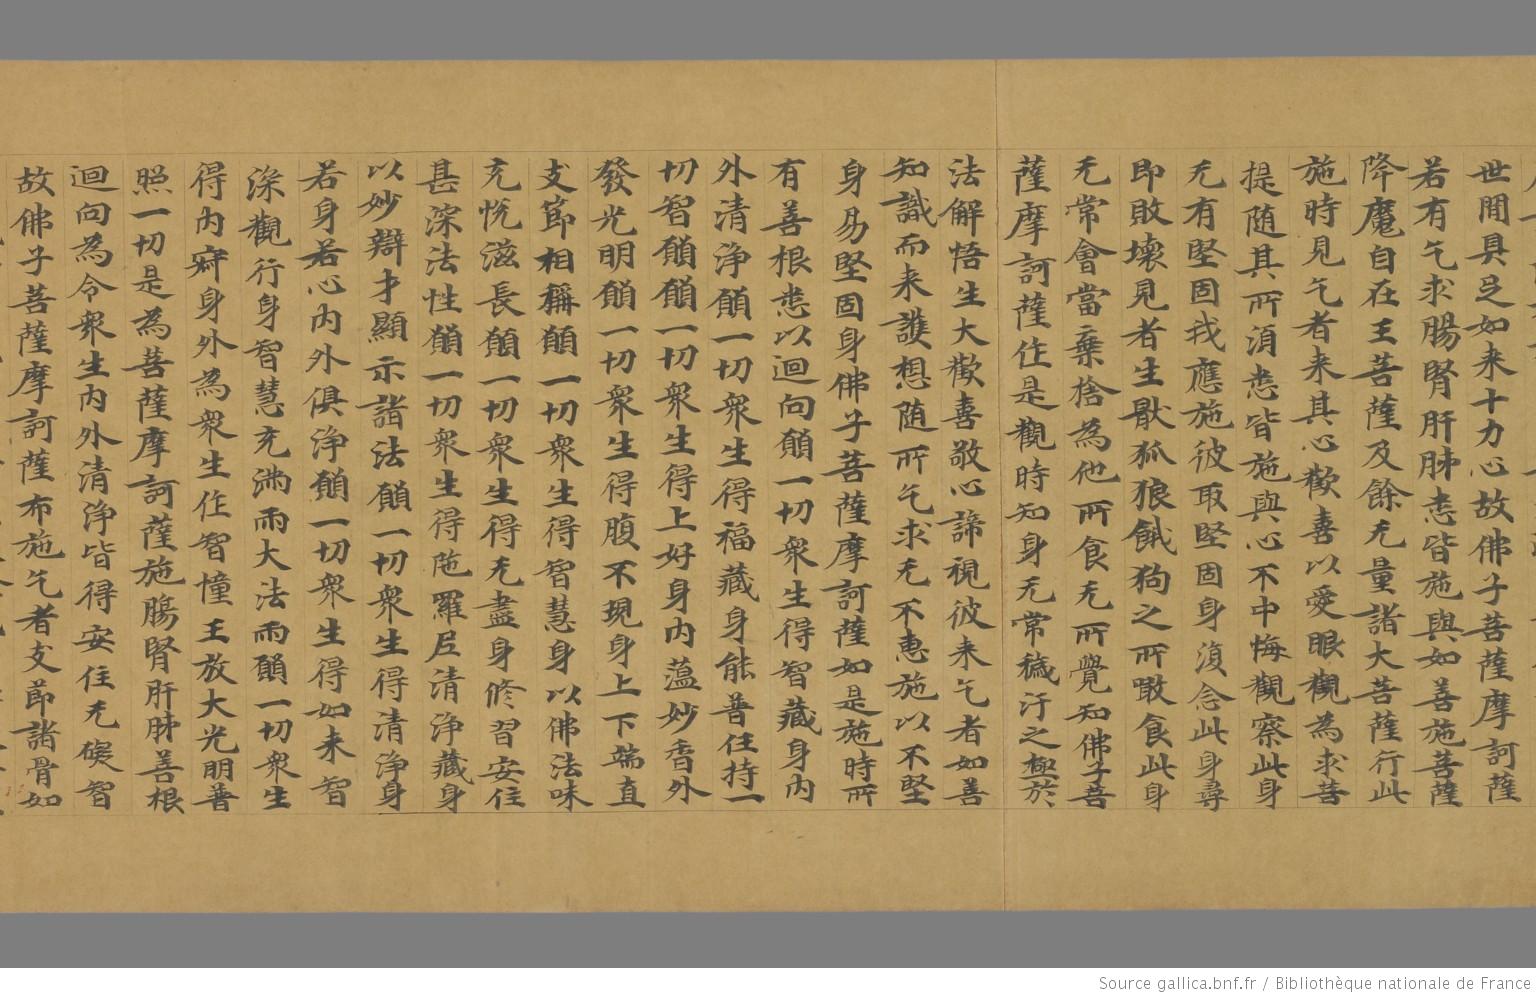 世間具足如来十力心故佛子菩薩摩訶薩
若有乞求腸腎肝肺悉皆施與如善施菩薩
降魔自在王菩薩及餘无量諸大菩薩行此
施時見乞者来其心歡喜以愛眼觀為求菩
提随其所湏悉皆施與心不中悔觀察此身
无有堅固我應施彼取堅固身復念此身尋
即敗壞見者生猒狐狼餓狗之所噉食此身
无常會當棄捨為他所食无所覺知佛子菩
薩摩訶薩作是觀時知身无常穢汙之極於
法解悟生大歡喜敬心諦視彼来乞者如善
知識而来護想随所乞求无不惠施以不堅
身易堅固身佛子菩薩摩訶薩如是施時所
有善根悉以迴向願一切衆生得智藏身内
外清淨願一切衆生得福藏身能普任持一
切智願願一切衆生得上好身内蕴妙香外
發光明願一切衆生得腹不現身上下端直
支節相稱願一切衆生得智慧身以佛法味
充悅滋長願一切衆生得无盡身修習安住
甚深法性願一切衆生得陁羅尼清淨藏身
以妙辯才顯示諸法願一切衆生得清淨身
若身若心内外俱淨願一切衆生得如来智
深觀行身智慧充滿雨大法雨願一切衆生
得内寂身外為衆生作智幢王放大光明普
照一切是為菩薩摩訶薩施腸腎肝肺善根
迴向為令衆生内外清淨皆得安住无礙智
故佛子菩薩摩訶薩布施乞者支節諸骨如
Source gallica.bnf.fr / Bibliothèque nationale de France